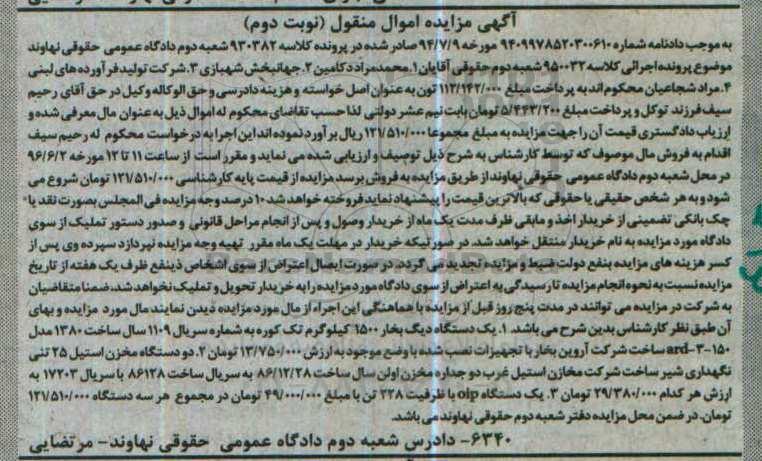 آگهی مزایده اموال منقول (نوبت دوم)
به موجب دادنامه شماره ۹۴۰۹۹۷۸۵۲۰۳۰۰۶۱۰ مورخه ۹۴/۷/۹ صادر شده در پرونده کلاسه ۹۳۰۳۸۲ شعبه دوم دادگاه عمومی حقوقی نهاوند
موضوع پرونده اجرائی کلاسه ۹۵۰۰۳۲ شعبه دوم حقوقی آقایان ۱.محمدمراد دکامین ۲.جهانبخش شهبازی ۳.شرکت تولیدفرآورده‌های لبنی
۴.مراد شجاعیان محکوم اند به پرداخت مبلغ ۱۱۲/۱۴۲/۰۰۰ تون به عنوان اصل خواسته و هزینه دادرسی و حق الوکاله وکیل در حق آقای رحیم
سیف فرزند توکل و پرداخت مبلغ ۵/۴۴۳/۲۰۰ تومان بابت نیم عشر دولتی لذا حسب تقاضای محکوم له اموال ذیل به عنوان مال معرفی شده و
ارزیاب دادگستری قیمت آن را جهت مزایده به مبلغ مجموعا ۱۲۱/۵۱۰/۰۰۰ ریال برآورد نموده اند این اجرا به درخواست محکوم له رحیم سیف
اقدام به فروش مال موصوف که توسط کارشناس به شرح ذیل توصیف و ارزیابی شده می نماید و مقرر است از ساعت ۱۱ تا ۱۲ مورخه ۹۶/۶/۲
در محل شعبه دوم دادگاه عمومی حقوقی نهاوند از طریق مزایده به فروش برسد مزایده از قیمت پایه کارشناسی ۱۲۱/۵۱۰/۰۰۰ تومان شروع می
شود و به هر شخص حقیقی یا حقوقی که بالاترین قیمت را پیشنهاد نماید فروخته خواهد شد ۱۰ درصد وجه مزایده فی المجلس بصورت نقد یا
چک بانکی تضمینی از خریدار اخذ و مابقی ظرف مدت یک ماه از خریدار وصول و پس از انجام مراحل قانونی و صدور دستور تملیک از سوی
دادگاه مورد مزایده به نام خریدار منتقل خواهد شد، در صورتیکه خریدار در مهلت یک ماه مقرر تهیه وجه مزایده نپردازد سپرده وی پس از
کسر هزینه های مزایده بنفع دولت ضبط و مزایده تجدید می گردد در صورت ایصال اعتراض از سوی اشخاص ذینفع ظرف یک هفته از تاریخ
مزایده نسبت به نحوه انجام مزایده تا رسیدگی به اعتراض از سوی دادگاه مورد مزایده را به خریدار تحویل و تملیک نخواهد شد، ضمنا متقاضیان
به شرکت در مزایده می توانند در مدت پنج روز قبل از مزایده با هماهنگی این اجراء از مال مورد مزایده دیدن نمایند مال مورد مزایده و بهای
آن طبق نظر کارشناس بدین شرح می باشد. ۱. یک دستگاه دیگ بخار ۱۵۰۰ کیلوگرم تک کوره به شماره سریال ۱۱۰۹ سال ساخت ۱۳۸۰ مدل
ard-۳-۱۵۰ ساخت شرکت آروین بخار با تجهیزات نصب شده با وضع موجود به ارزش ۱۳/۷۵۰/۰۰۰ تومان ۲. دو دستگاه مخزن استیل ۲۵ تنی
نگهداری شیر ساخت شرکت مخازن استیل غرب دو جداره مخزن اولن سال ساخت ۸۶/۱۲/۲۸ به سریال ساخت ۸۶۱۲۸ با سریال ۱۷۲۰۳ به
ارزش هر کدام ۲۹/۳۸۰/۰۰۰ تومان ۳. یک دستگاه olp با ظرفیت ۳۲۸ تن با مبلغ ۴۹/۰۰۰/۰۰۰ تومان در مجموع هر سه دستگاه ۱۲۱/۵۱۰/۰۰۰
تومان. در ضمن محل مزایده دفتر شعبه دوم حقوقی نهاوند می باشد.
۶۳۴۰- دادرس شعبه دوم دادگاه عمومی حقوقی نهاوند- مرتضایی